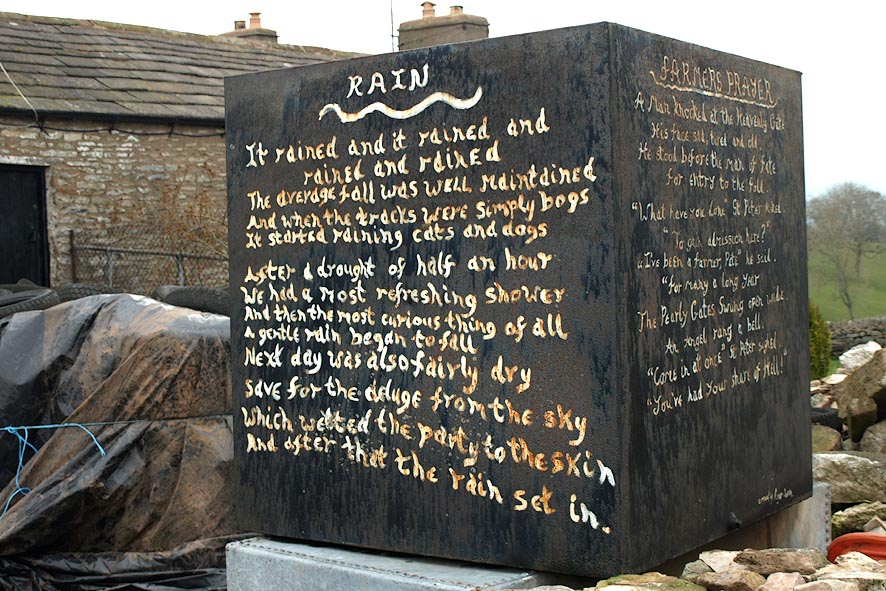 RAIN
It rained and it rained and
rained and rained
The average fall was well maintained
And when the tracks were simply bogs
It started raining cats and dogs
After a drought of half an hour
We had a most refreshing shower
And then the most curious thing of all
A gentle rain began to fall
Next day was also fairly dry
save for the deluge from the sky
Which wetted the party to the skin
And after that the rain set in.
FARMERS PRAYER
A Man knocked at the Heavenly Gate
His face old, tired and old.
He stood before the man of fate
for entry to the fold.
"What have you done" St Peter asked.
"To gain admission here?"
"I've been a farmer, Pete" he said.
"for many a long year
The Pearly Gates Swung open wide.
An Angel rang a bell.
"Come in all once" St Peter sighed.
"You've had your share of Hell!"